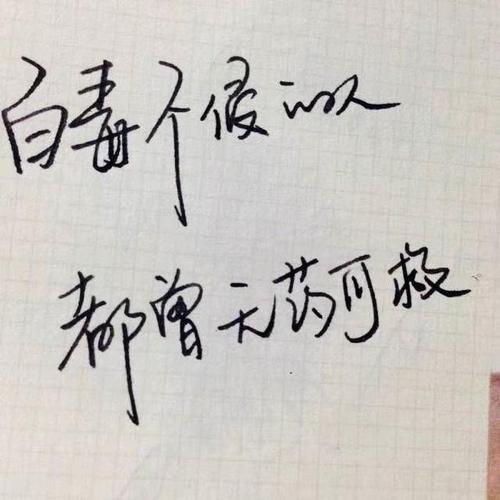 百毒不侵的人
都曾无药可救